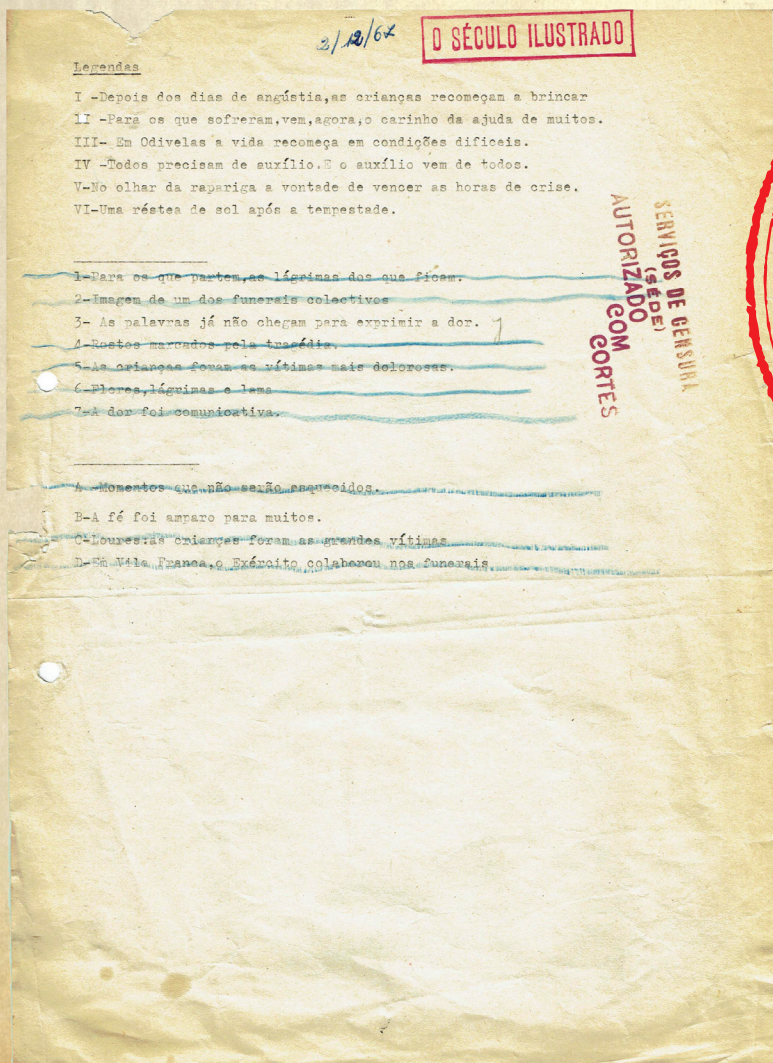 2/12/67
O SÉCULO ILUSTRADO
Legendas
I -Depois dos dias de angústia,as crianças recomeçam a brincar
II -Para os que sofreram,vem,agora,o carinho da ajuda de muitos.
III- Em Odivelas a vida recomeça em condições dificeis.
IV -Todos precisam de auxílio.E o auxílio vem de todos.
V-No olhar da rapariga a vontade de vencer as horas de crise.
VI-Uma réstea de sol após a tempestade.
SERVIÇOS DE CENSURA
(SÉDE)
AUTORIZADO
COM
CORTES
1-Para os que partem,as lágrimas dos que ficam.
2-Imagem de um dos funerais colectivos
3- As palavras já não chegam para exprimir a dor.
4-Rostos marcados pela tragédia.
5-As crianças foram as vítimas mais dolorosas.
6-Flores,lágrimas e lama
7-A dor foi comunicativa.
A -Momentos que não serão esquecidos.
B-A fé foi amparo para muitos.
C-Loures:as crianças foram as grandes vítimas
D-Em Vila Franca,o Exército colaborou nos funerais